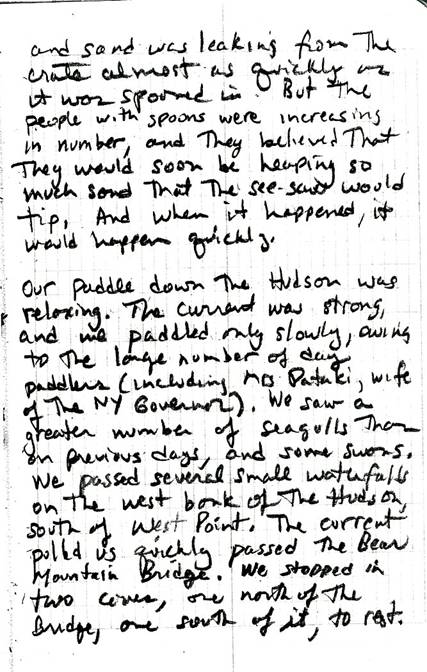 and sand was leaking from the
crate almost as quickly as
it was spooned in. But the
people with spoons were increasing
in number, and they believed that
they would soon be heaping so
much sand that the see-saw would
tip. And when it happened, it
would happen quickly.
Our paddle down the Hudson was
relaxing. The current was strong,
and we paddled only slowly, owing
to the large number of day
paddlers (including Mrs Pataki, wife
of the NY Governor). We saw a
greater number of seagulls than
on previous days, and some swans.
We passed several small waterfalls
on the west bank of the Hudson,
south of West Point. The current
pulled us quickly passed the Bear
Mountain Bridge. We stopped in
two coves, one north of the
Bridge, one south of it, to rest.